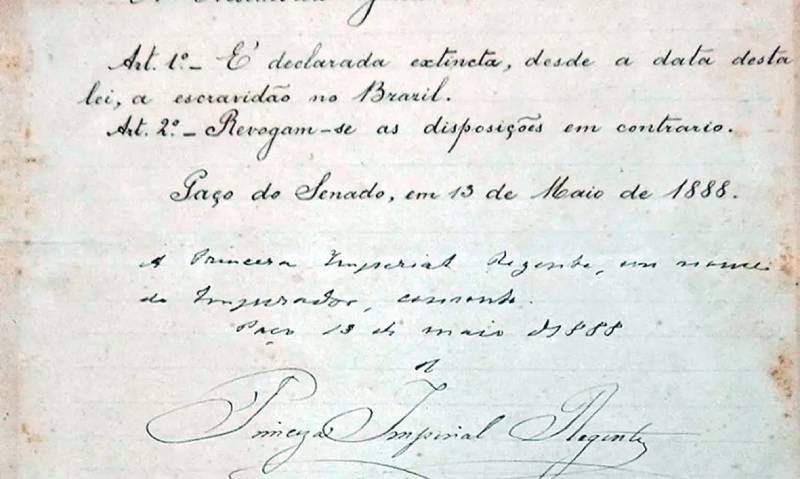 Art. 1º - É declarada extincta, desde a data desta
lei, a escravidão no Brazil.
Art. 2º - Revogam-se as disposições em contrario.
Paço do Senado, em 13 de Maio de 1888.
A Princeza Imperial Regente, em nome
do Imperador, consente.
Paço 13 de maio de 1888
A
Princeza Imperial Regente